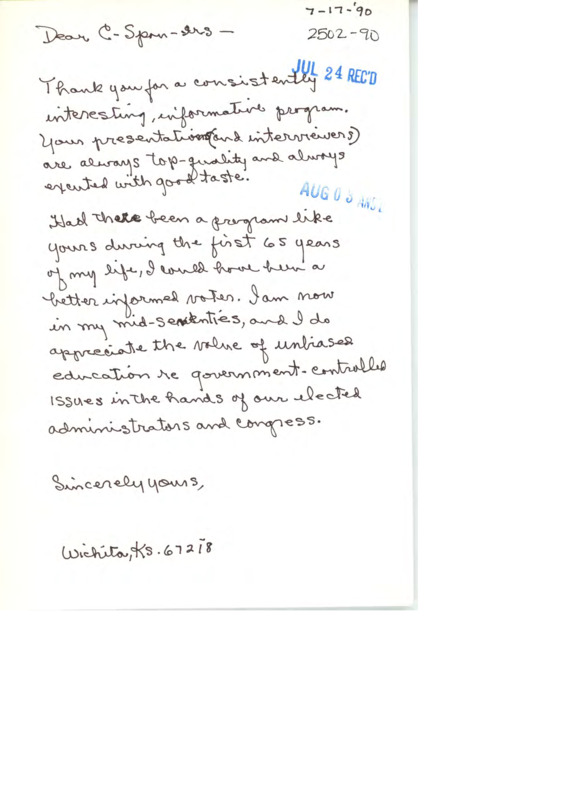 7-17-'90
Dear C-Span-ers —
2502-90
JUL 24 REC'D
Thank you for a consistently
interesting, informative program.
Your presentation (and interviewers)
are always top-quality and always
executed with good taste.
AUG 03 ANS'D
Had there been a program like
yours during the first 65 years
of my life, I could have been a
better informed voter. I am now
in my mid-seventies, and I do
appreciate the value of unbiased
education re government-controlled
issues in the hands of our elected
administrators and congress.
Sincerely yours,
Wichita, Ks. 67218